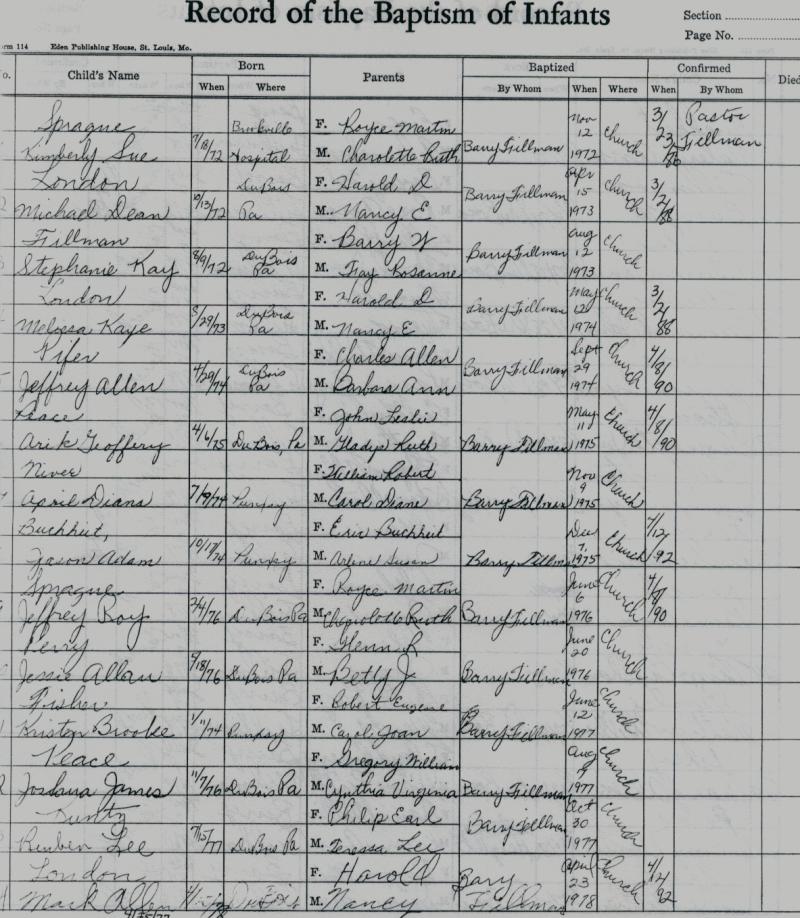 Record of the Baptism of Infants
Section
Page No.
rm 114 Eden Publishing House, St. Louis, Mo.
o. Child's Name Born Parents Baptized Confirmed Died
When Where By Whom When Where When By Whom
Sprague Brookville F. Royce Martin Nov 12 3/ Pastor
Kimberly Sue 7/18/72 Hospital M. Charolotte Ruth Barry Fillman 1972 Church 23/ Fillman
London DuBois F. Harold D Apr 15 3/
2 Michael Dean 10/13/72 Pa M. Nancy E Barry Fillman 1973 Church 2/ 88
Fillman F. Barry W Aug 12
Stephanie Kay 8/9/72 DuBois Pa M. Fay Rosanne Barry Fillman 1973 Church
London F. Harold D May 12 3/
Melissa Kaye 8/29/73 DuBois Pa M. Nancy E Barry Fillman 1974 Church 2/ 88
Fifer F. Charles Allen Sept 29 4/
Jeffrey Allen 4/29/74 DuBois Pa M. Barbara Ann Barry Fillman 1974 Church 8/ 90
Peace F. John Leslie May 11 4/
Arik Geoffery 4/6/75 DuBois, Pa M. Gladys Ruth Barry Fillman 1975 Church 8/ /90
Niver F. William Robert Nov 9
April Diana 7/19/74 Punxsy M. Carol Diane Barry Fillman 1975 Church
Buchheit, F. Eric Buchheit Dec 7,
Jason Adam 10/17/74 Punxsy M. Arlene Susan Barry Fillman 1975 Church /12 /92
Sprague F. Royce Martin June 6 4/
Jeffrey Roy 2/4/76 DuBois Pa M. Charolotte Ruth Barry Fillman 1976 Church 8/ /90
Perry F. Henry R June 20
Jessie Allan /18/76 DuBois Pa M. Betty J. Barry Fillman 1976 Church
Fisher F. Robert Eugene June 12
Kristen Brooke 1/11/74 Punxsy M. Carol Joan Barry Fillman 1977 Church
Peace F. Gregory William Aug
Joshua James 11/7/76 DuBois Pa M. Cynthia Virginia Barry Fillman 1977 Church
Kuntz F. Philip Earl Oct 30
Reuben Lee 7/15/77 DuBois Pa M. Teressa Lee Barry Fillman 1977 Church
London F. Harold April 23 4/
Mark Allen DuBois M. Nancy Barry Fillman 1978 Church 12/ 92